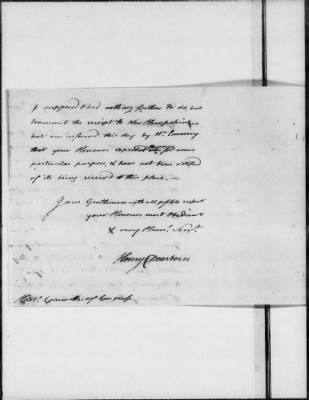 I supposed I had nothing further to do, but
transmit the receipt to New Hampshire,
but am informed this day by Mr. Emmery
that your Honours expected for some
particular purpose, & have not been notified
of its being received at this place. —
I am Gentlemen with all possible respect
your Honours most Obedient
& very Hum. Serv.
Henry Dearborn
Committee of Congress